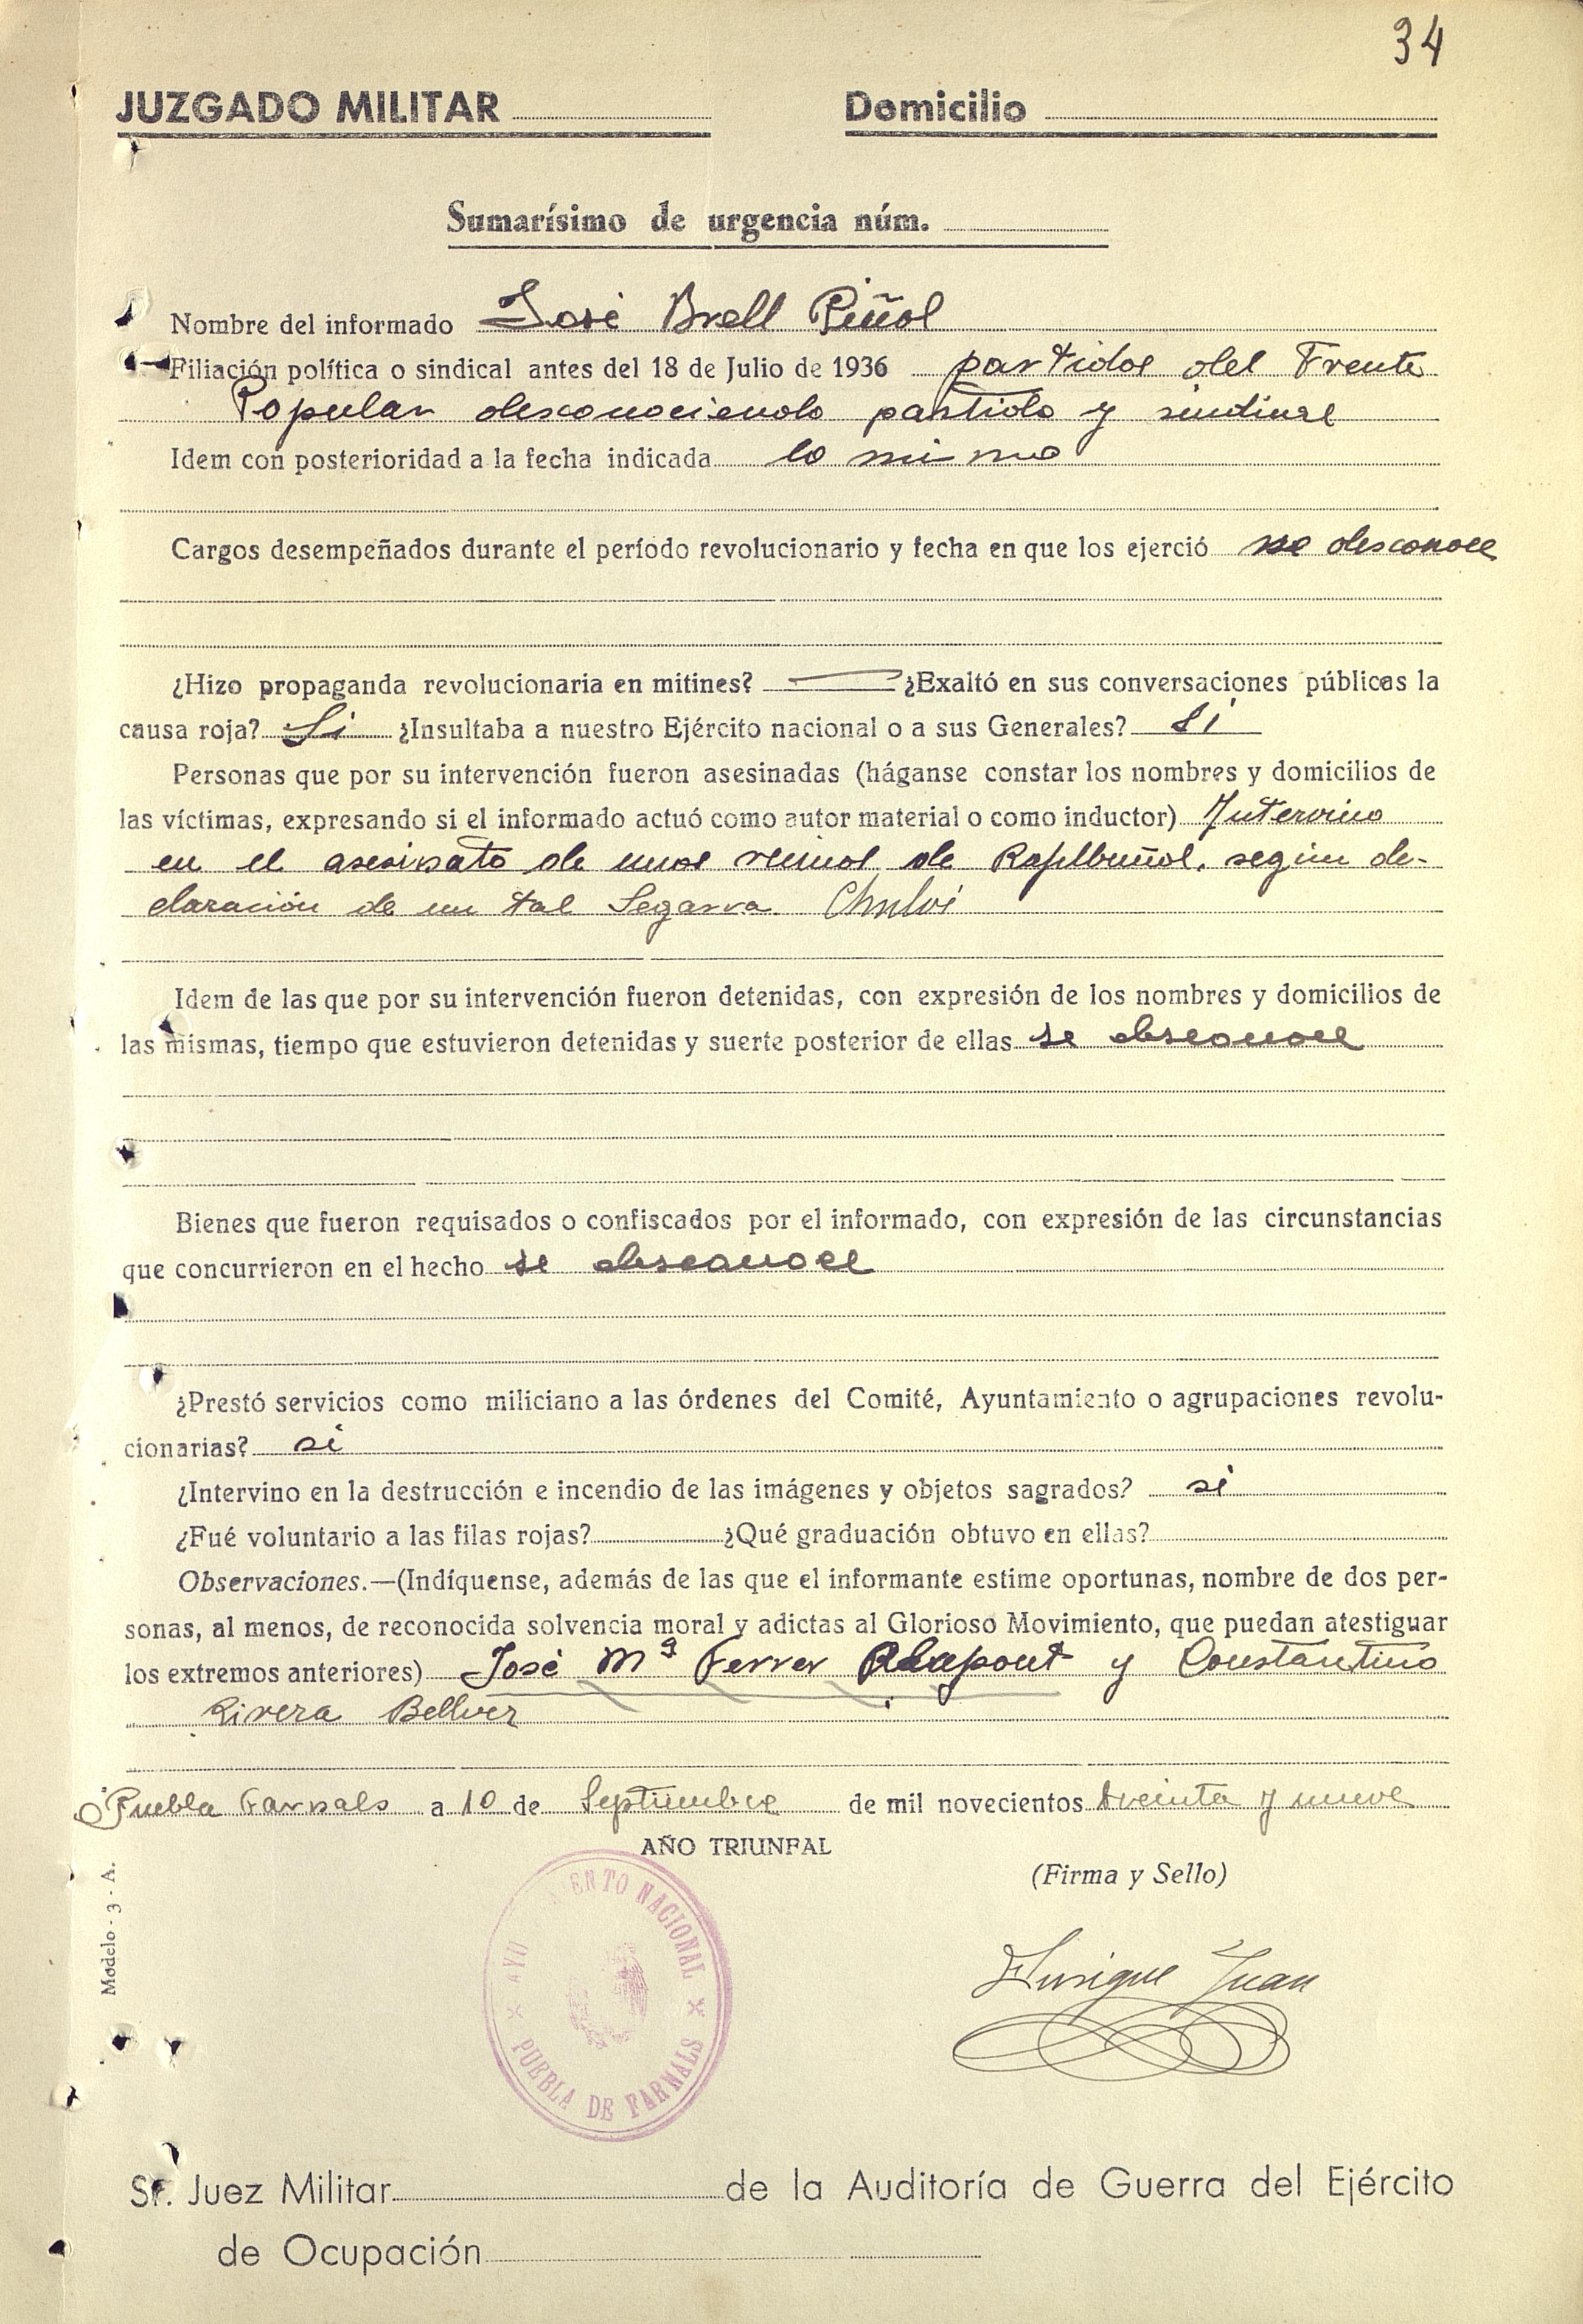 34
JUZGADO MILITAR Domicilio
Sumarísimo de urgencia núm.
Nombre del informado José Brell Piñol
Filiación política o sindical antes del 18 de Julio de 1936 partidos del Frente
Popular desconociendo partido y sindical
Idem con posterioridad a la fecha indicada lo mismo
Cargos desempeñados durante el período revolucionario y fecha en que los ejerció se desconoce
¿Hizo propaganda revolucionaria en mitines? ¿Exaltó en sus conversaciones públicas la
causa roja? Si ¿Insultaba a nuestro Ejército nacional o a sus Generales? Si
Personas que por su intervención fueron asesinadas (háganse constar los nombres y domicilios de
las víctimas, expresando si el informado actuó como autor material o como inductor) Intervino
en el asesinato de unos vecinos de Rafelbuñol, según de-
claración de un tal Segarra Chulvi
Idem de las que por su intervención fueron detenidas, con expresión de los nombres y domicilios de
las mismas, tiempo que estuvieron detenidas y suerte posterior de ellas se desconoce
Bienes que fueron requisados o confiscados por el informado, con expresión de las circunstancias
que concurrieron en el hecho se desconoce
¿Prestó servicios como miliciano a las órdenes del Comité, Ayuntamiento o agrupaciones revolu-
cionarias? si
¿Intervino en la destrucción e incendio de las imágenes y objetos sagrados? si
¿Fué voluntario a las filas rojas? ¿Qué graduación obtuvo en ellas?
Observaciones.—(Indíquense, además de las que el informante estime oportunas, nombre de dos per-
sonas, al menos, de reconocida solvencia moral y adictas al Glorioso Movimiento, que puedan atestiguar
los extremos anteriores) José Mª Ferrer y Constantino
Rivera Bellver
Puebla Farnals a 10 de Septiembre de mil novecientos treinta y nueve
AÑO TRIUNFAL
(Firma y Sello)
AYU AMIENTO NACIONAL
PUEBLA DE FARNALS
Enrique Juan
Modelo - 3 - A.
Sr. Juez Militar de la Auditoría de Guerra del Ejército
de Ocupación